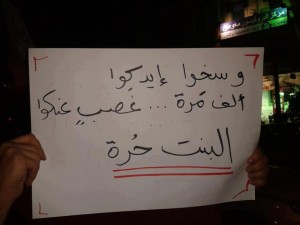 وسخوا إيديكوا
ألف مَرة ... غصبٍ عنكوا
البنت حُرة